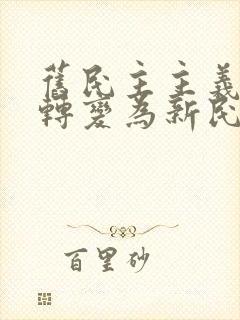 舊民主主義
轉變為新民
百里砂